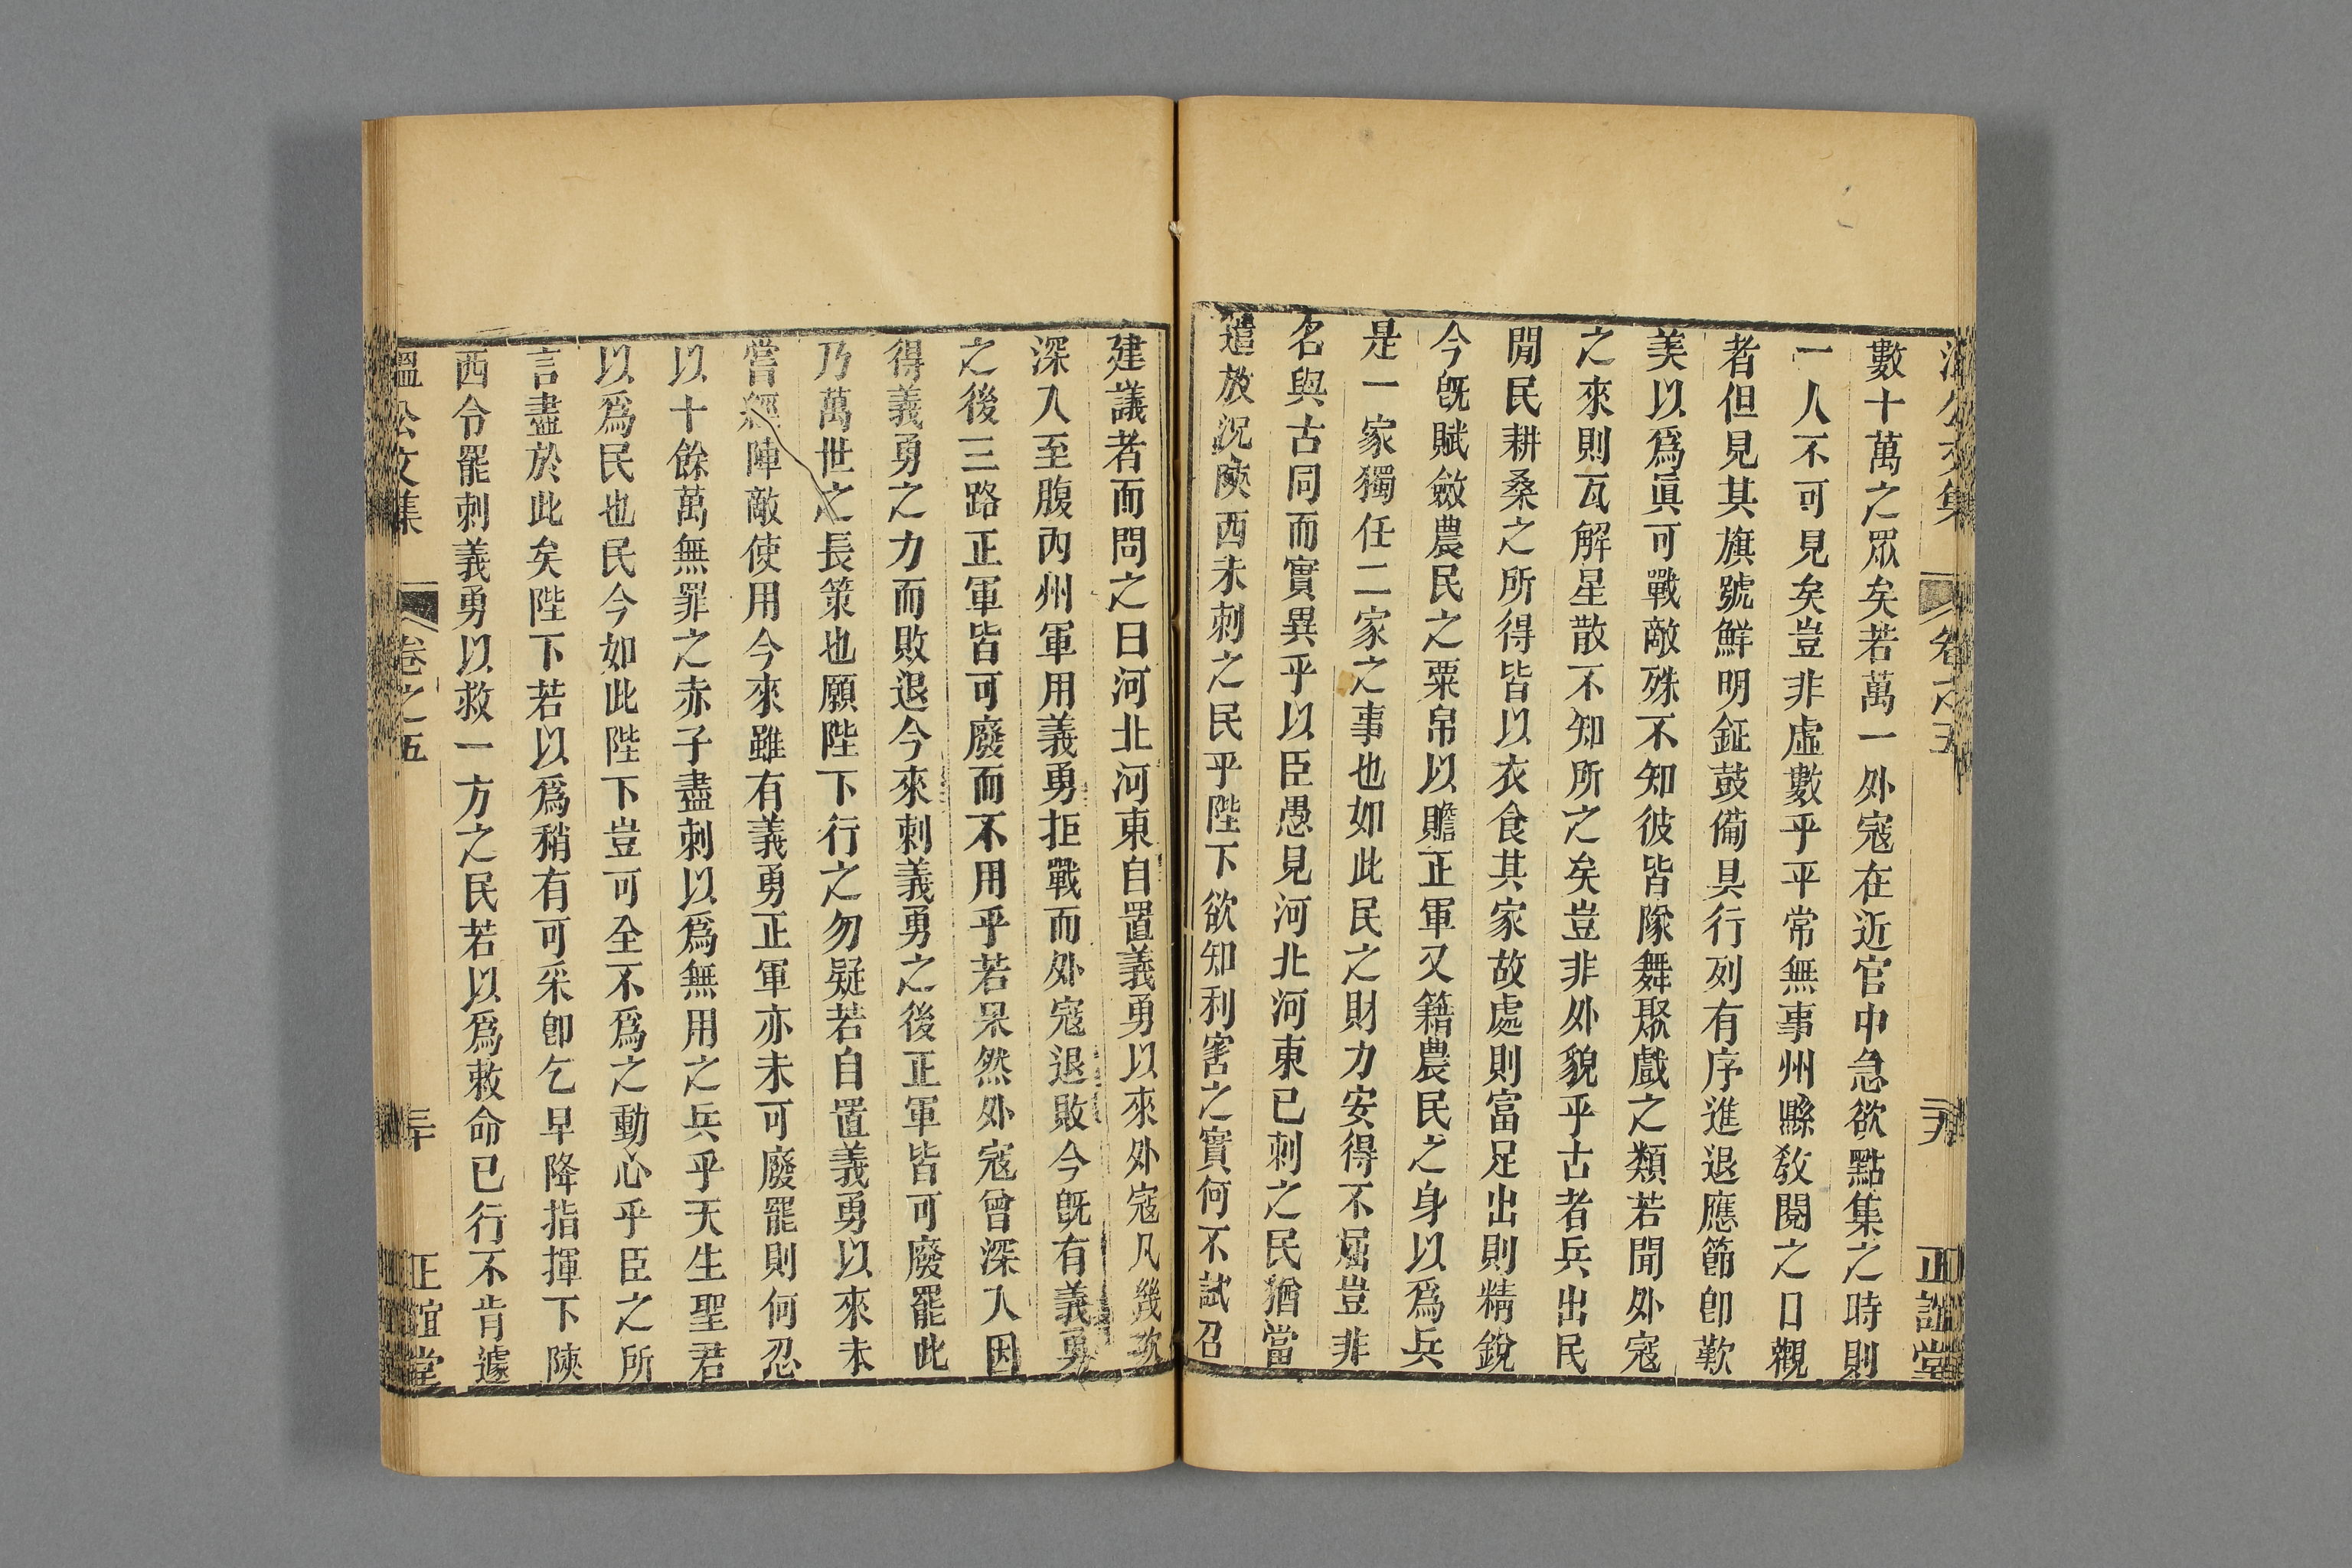 溫公文集 卷之五 二十九 正誼堂
數十萬之眾矣若萬一外寇在近官中急欲點集之時則
一人不可見矣豈非虛數乎平常無事州縣敎閱之日觀
者但見其旗號鮮明鉦鼓備具行列有序進退應節卽歎
美以爲眞可戰敵殊不知彼皆隊舞聚戲之類若聞外寇
之來則瓦解星散不知所之矣豈非外貌乎古者兵出民
閒民耕桑之所得皆以衣食其家故處則富足出則精銳
今旣賦斂農民之粟帛以贍正軍又籍農民之身以爲兵
是一家獨任二家之事也如此民之財力安得不屈豈非
名與古同而實異乎以臣愚見河北河東已刺之民猶當
遣放況陝西未刺之民乎陛下欲知利害之實何不試召
建議者而問之曰河北河東自置義勇以來外寇凡幾次
深入至腹內州軍用義勇拒戰而外寇退敗今旣有義勇
之後三路正軍皆可廢而不用乎若果然外寇曾深入因
得義勇之力而敗退今來刺義勇之後正軍皆可廢罷此
乃萬世之長策也願陛下行之勿疑若自置義勇以來未
嘗經陣敵使用今來雖有義勇正軍亦未可廢罷則何忍
以十餘萬無罪之赤子盡刺以爲無用之兵乎天生聖君
以爲民也民今如此陛下豈可全不爲之動心乎臣之所
言盡於此矣陛下若以爲稍有可采卽乞早降指揮下陝
西令罷刺義勇以救一方之民若以爲敕命已行不肯遽
溫公文集 卷之五 三十 正誼堂